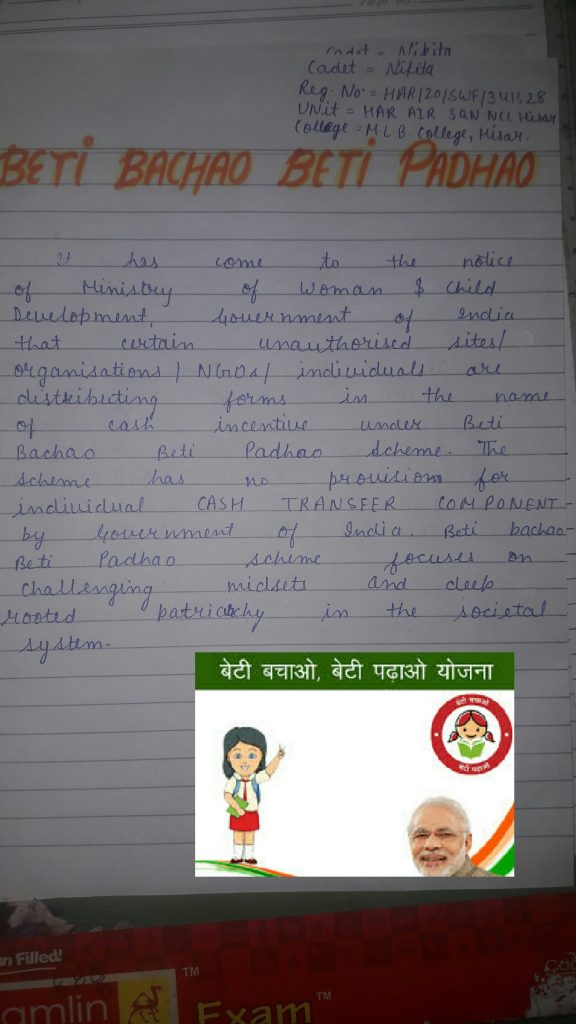 Page No.
Cadet = Nikita
Cadet = Nikita
Reg. No. = HAR/20/SWF/341528
UNit = HAR AIR SQN NCC Hisar
College = M.L.B. College, Hisar.
BETI BACHAO BETI PADHAO
It has come to the notice
of Ministry of Woman & Child
Development, Government of India
that certain unauthorised sites/
organisations/NGOs/individuals are
distributing forms in the name
of cash incentive under Beti
Bachao Beti Padhao Scheme. The
scheme has no provision for
individual CASH TRANSFER COMPONENT
by Government of India. Beti bachao
Beti Padhao scheme focuses on
challenging midsets and deep
rooted patriarchy in the societal
system.
बेटी बचाओ, बेटी पढ़ाओ योजना
बेटी बचाओ
बेटी पढ़ाओ
n Filled!
TM
amlin
Exam TM